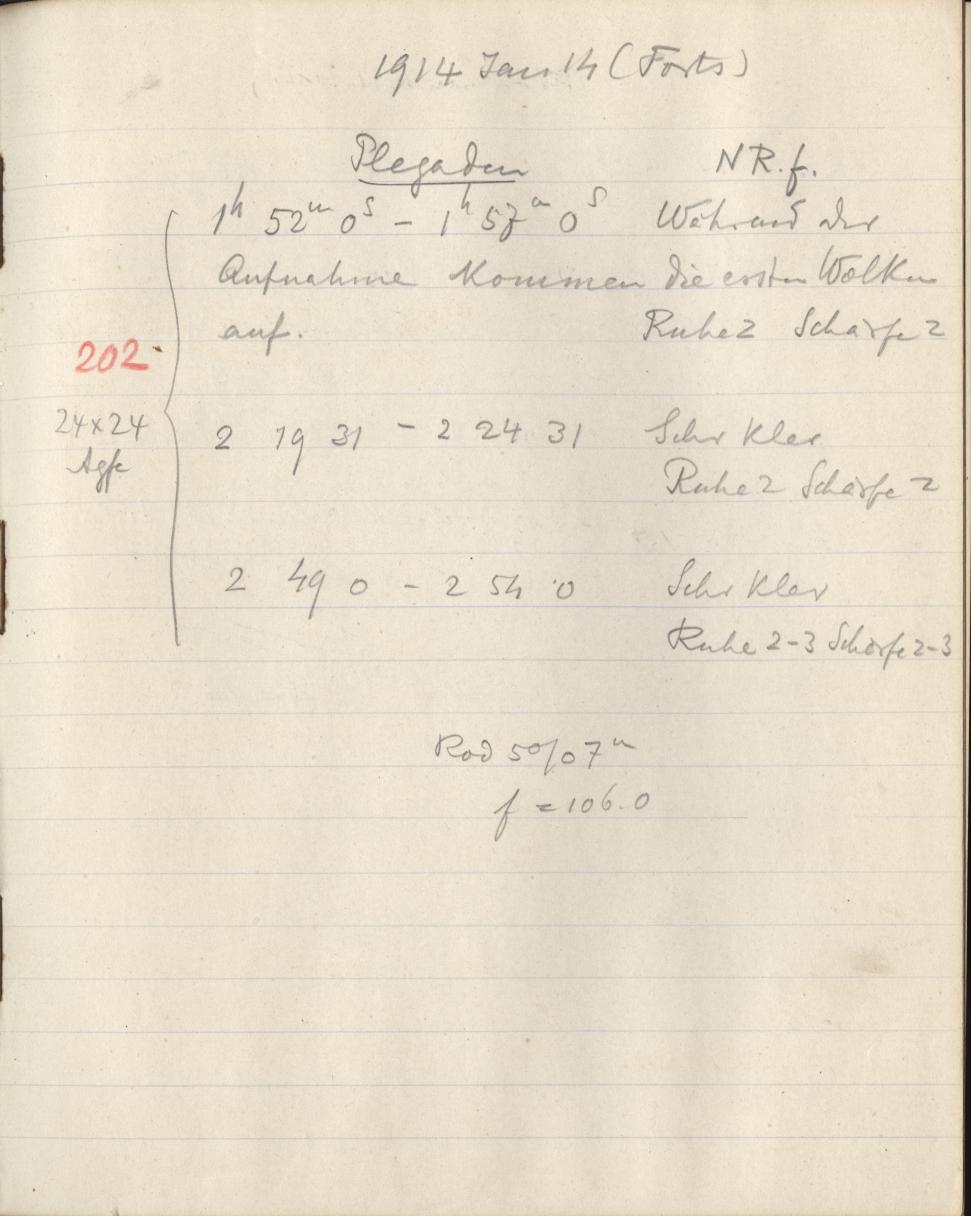 1914 Jan 14 (Forts)
Plegaden N R. f.
1h 52m 0s – 1h 57m 0s Während der
Aufnahme kommen die ersten Wolken
auf. Ruhe 2 Schärfe 2
202
24x24
Agfa
2 19 31 – 2 24 31 Sehr klar
Ruhe 2 Schärfe 2
2 49 0 – 2 54 0 Sehr klar
Ruhe 2-3 Schärfe 2-3
Rod
f = 106.0